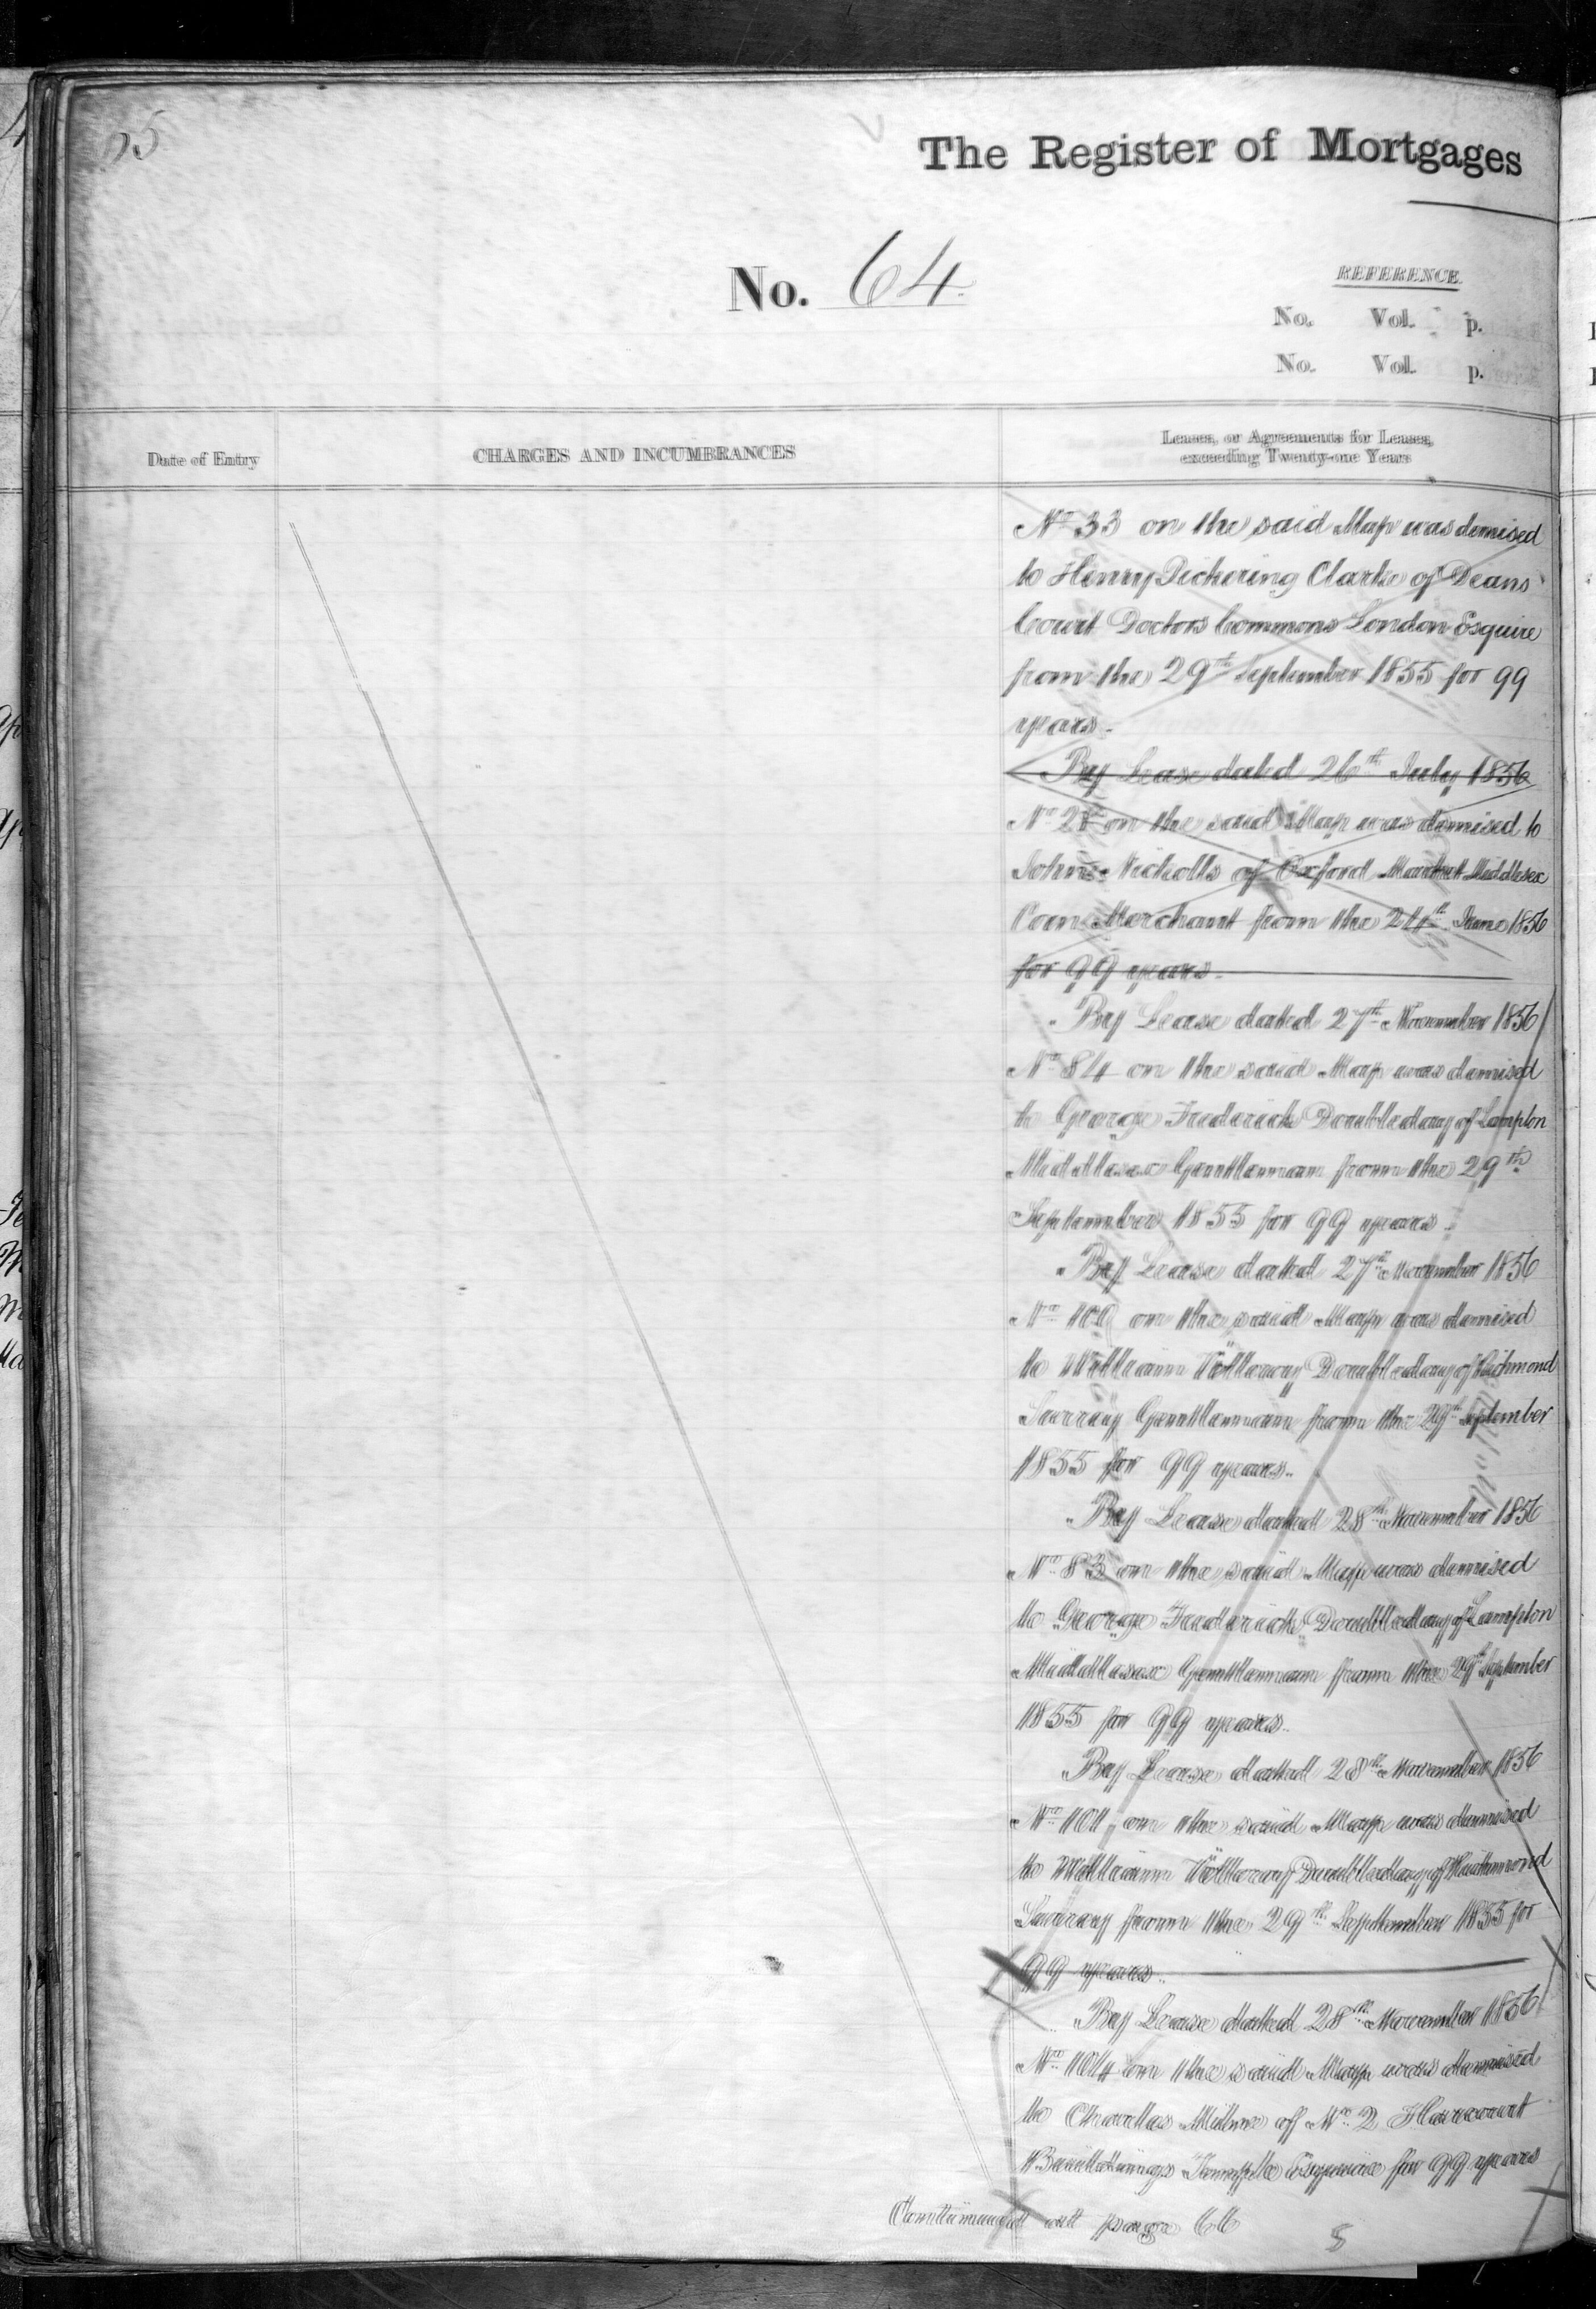 The Register of Mortgages
No. 64.
REFERENCE.
No. Vol. p.
No. Vol. p.
Date of Entry
CHARGES AND INCUMBRANCES
Leases, or Agreements for Leases,
exceeding Twenty-one Years
No 33 on the said Map was demised
to Henry Pickering Clarke of Deans
Court Doctors Commons London Esquire
from the 29th September 1855 for 99
years.
By Lease dated 26th July 1856
No on the said Map was demised to
John Nicholls of Oxford Market Middlesex
Corn Merchant from the 24th June 1856
for 99 years.
By Lease dated 27th November 1856
No 84 on the said Map was demised
to George Frederick Doubleday of Lampton
Middlesex Gentleman from the 29th
September 1855 for 99 years.
By Lease dated 27th November 1856
No on the said Map was demised
to William Doubleday of Richmond
Surrey Gentleman from the 29th September
1855 for 99 years.
By Lease dated 28th November 1856
No 83 on the said Map was demised
to George Frederick Doubleday of Lampton
Middlesex Gentleman from the 29th September
1855 for 99 years.
By Lease dated 28th November 1856
No 101 on the said Map was demised
to William Doubleday of Richmond
Surrey from the 29th September 1855 for
99 years.
By Lease dated 28th November 1856
No 104 on the said Map was demised
to Charles Milne of No 2 Harcourt
Buildings Temple Esquire for 99 years
Continued at page 66